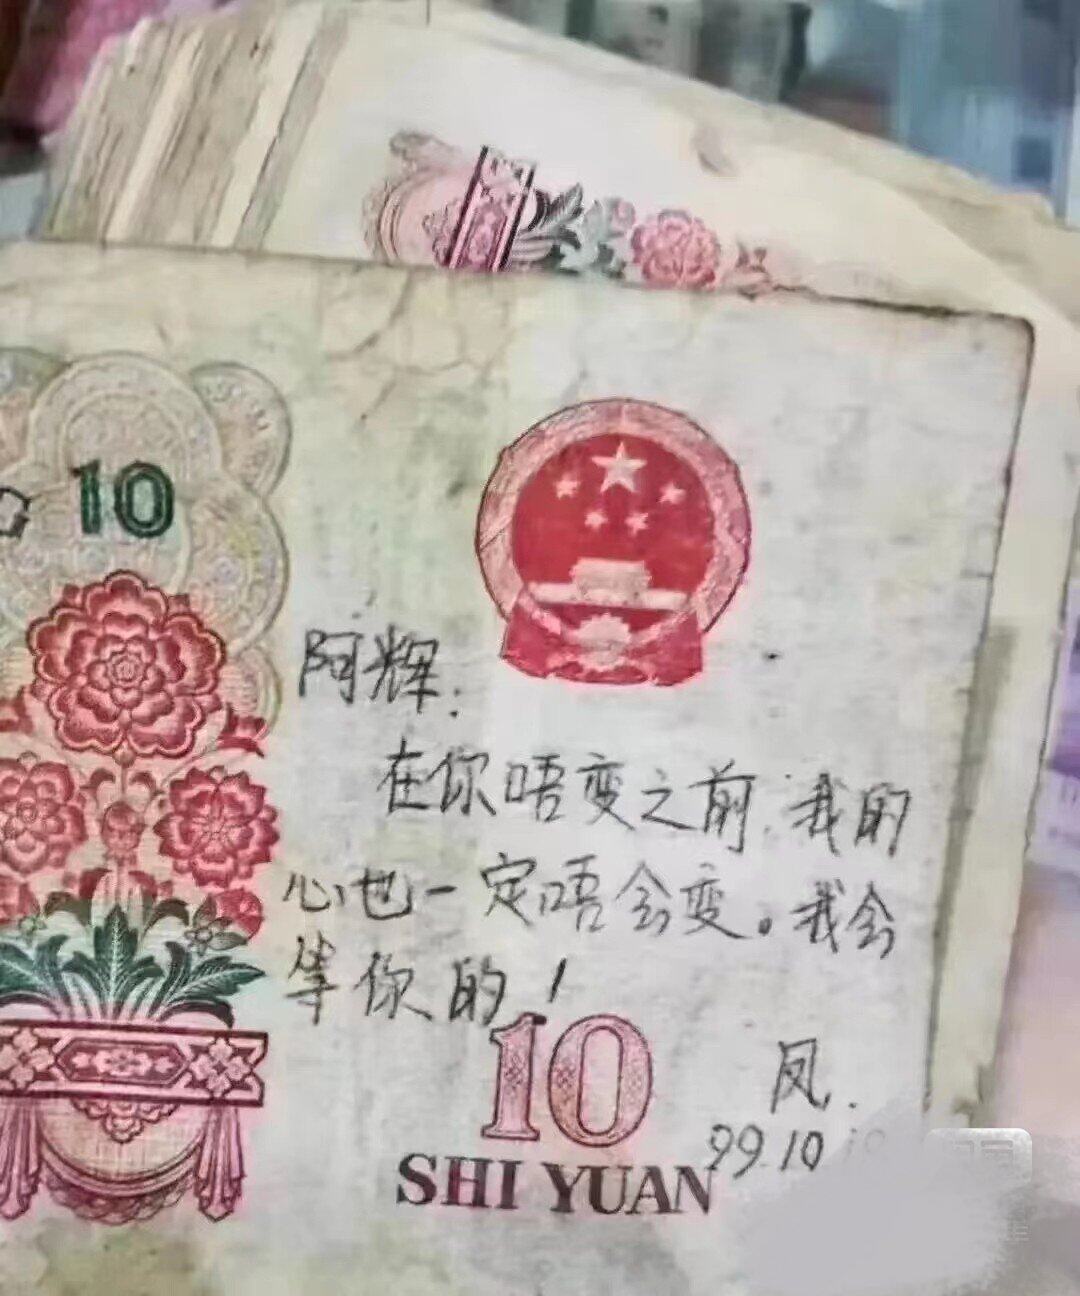 10
阿辉.
在你唔变之前.我的
心也一定唔会变。我会
等你的!
10
凤.
99.10
SHI YUAN